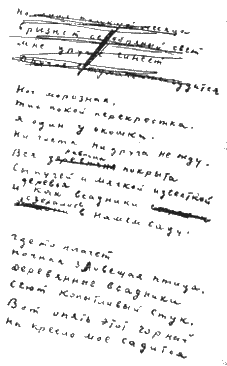 Ночь морозная.
Тих покой перекрестка.
Я один у окошка,
Ни гостя ни друга не жду.
Вся равнина покрыта
Сыпучей и мягкой известкой
деревья Как всадники
в нашем саду.
Где то плачет
ночная зловещая птица.
Деревянные всадники
Сеют копытливый стук.
Вот опять этот черный
На кресло мое садится